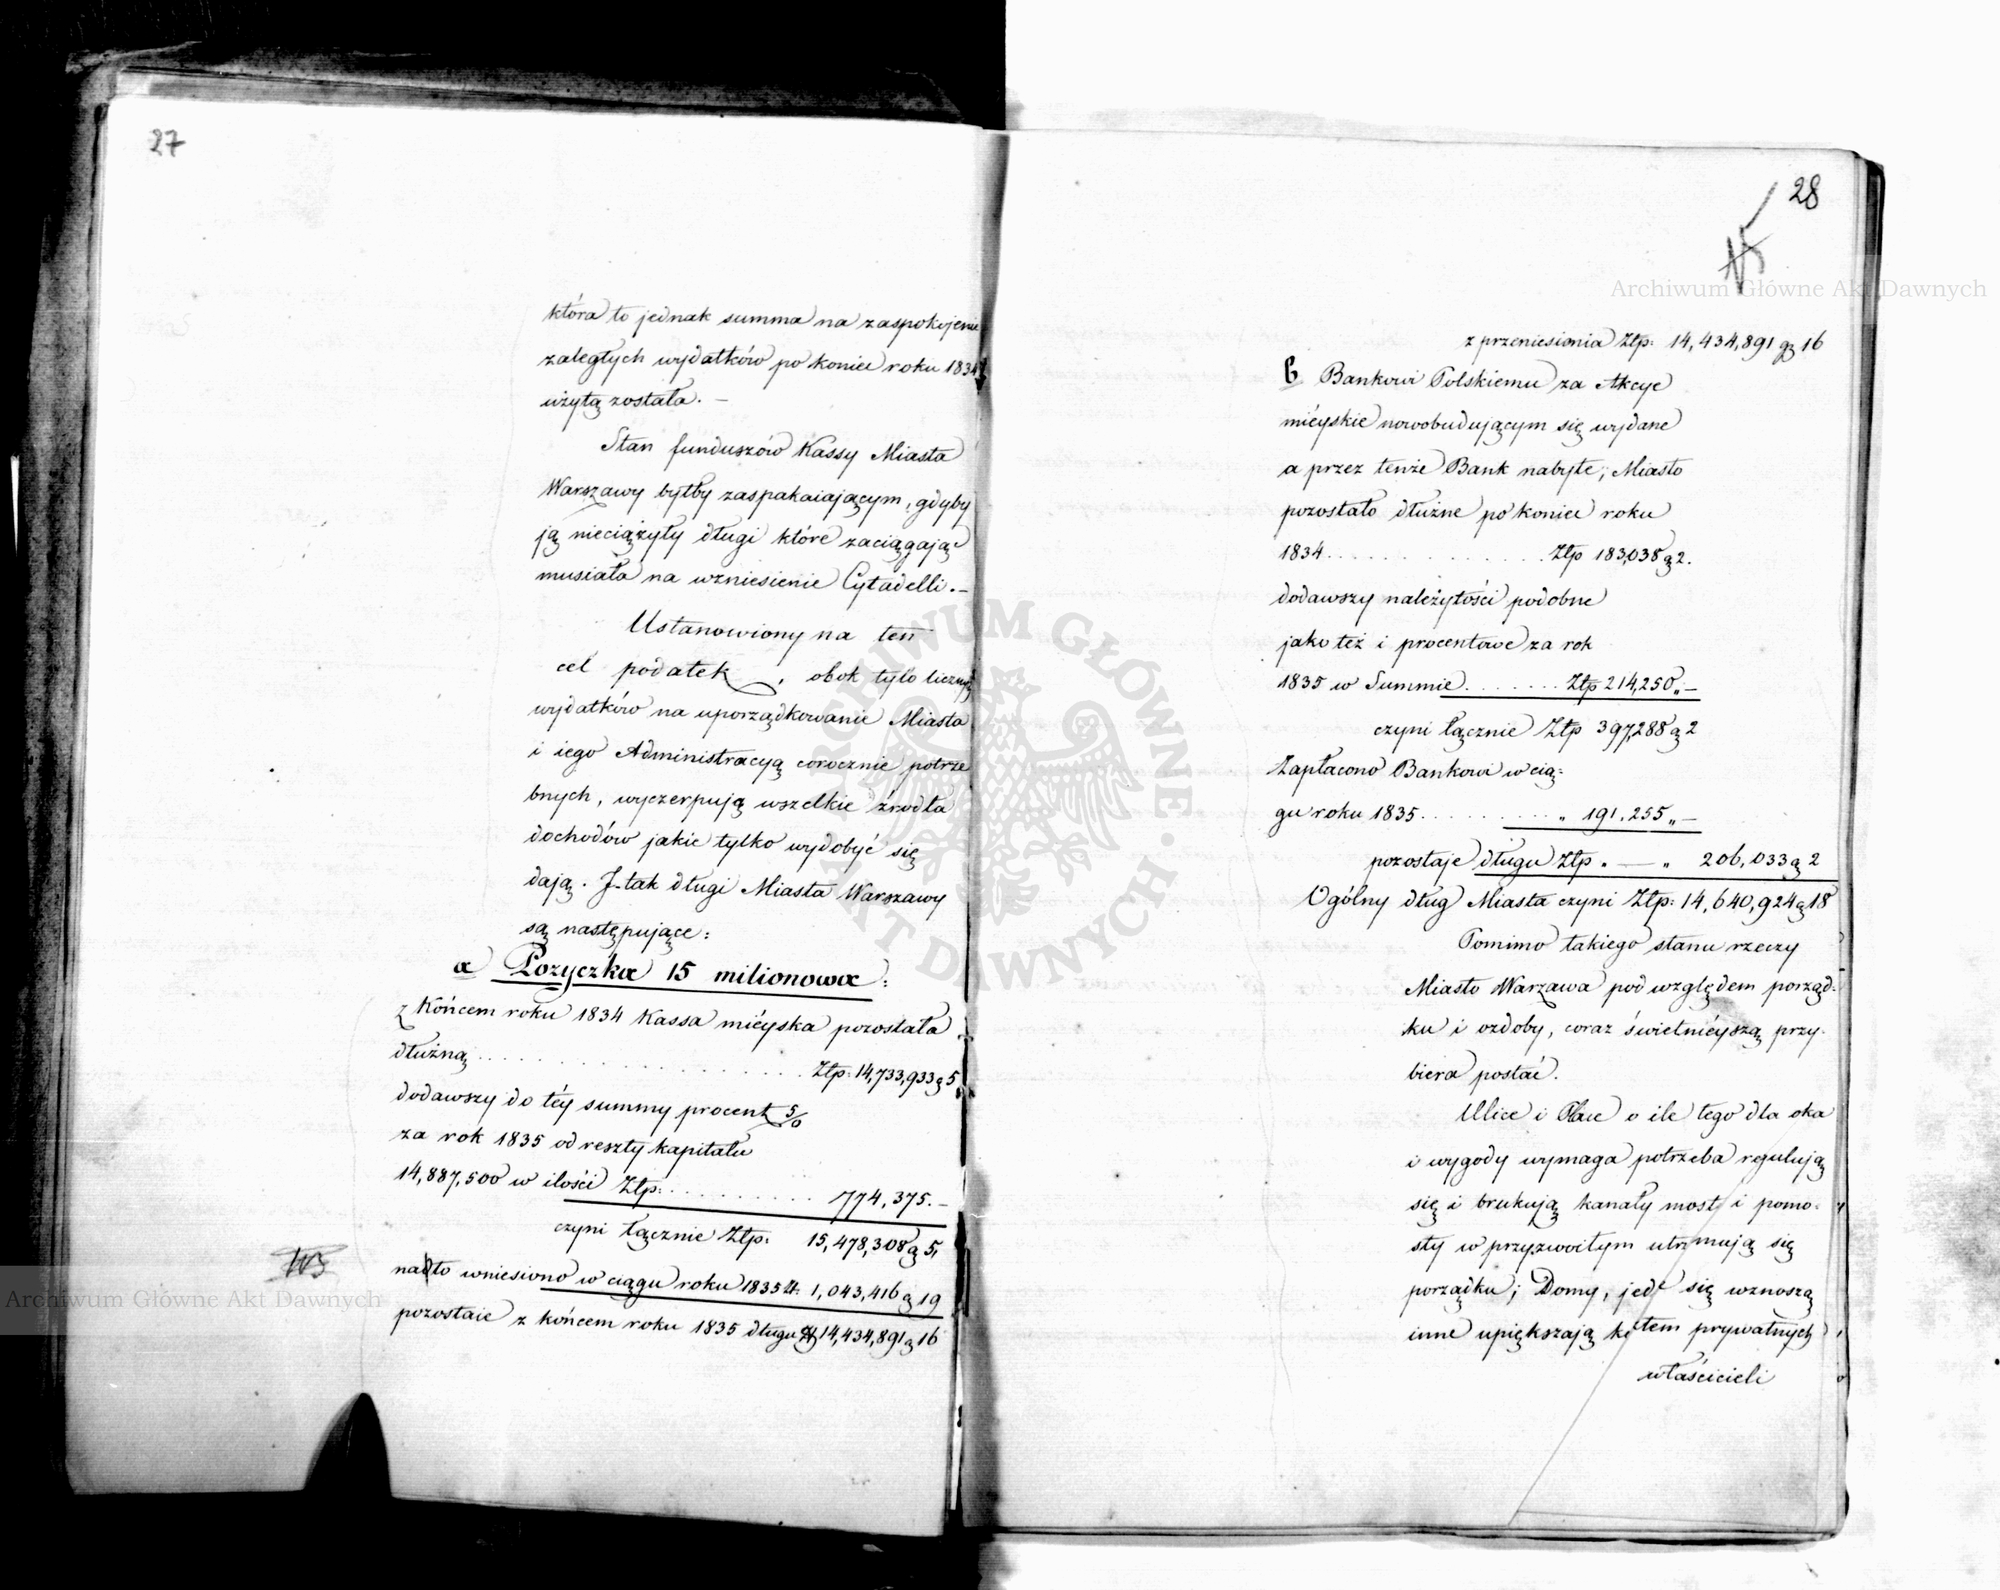 27
która to jednak summa na zaspokojenie
zaległych wydatków po koniec roku 1834
użytą została. —
Stan funduszów Kassy Miasta
Warszawy byłby zaspakaiającym, gdyby
ją nieciążyły długi które zaciągając
musiała na wzniesienie Cytadelli. —
Ustanowiony na ten
cel podatek, obok tylo licznych
wydatków na uporządkowanie Miasta
i iego Administracyą corocznie potrze
bnych, wyczerpują wszelkie źrodła
dochodów jakie tylko wydobyć się
dają. I tak długi Miasta Warszawy
są następujące:
a Pozyczka 15 milionowa:
z Końcem roku 1834 Kassa mieyska pozostała
dłużną . . . . . . . . . . Złp: 14,733,933 g 5
dodawszy do téy summy procent 5/0
za rok 1835 od reszty kapitału
14,887,500 w ilości Złp: . . . . . . . . 774,375. —
czyni łącznie Złp: 15,478,308 g 5,
nadto wniesiono w ciągu roku 1835 zł: 1,043,416 g 19
pozostaie z końcem roku 1835 długu Zł 14,434,891 g 16
28
z przeniesienia Złp: 14,434,891 g 16
b Bankowi Polskiemu za Akcye
miéyskie nowobudującym się wydane
a przez tenże Bank nabyte, Miasto
pozostało dłużne po koniec roku
1834 . . . . . . . . . . Złp 183,038 g 2.
dodawszy należytości podobne
jako też i procentowe za rok
1835 w Summie . . . . . . . Złp 214,250 „ —
czyni łącznie Złp 397,288 g 2
Zapłacono Bankowi w cią:
gu roku 1835 . . . . . . . . . „ 191,255 „ —
pozostaje długu Złp „ — „ 206,033 g 2
Ogólny dług Miasta czyni Złp: 14,640,924 g 18
Pomimo takiego stanu rzeczy
Miasto Warszawa pod względem porząd:
ku i ozdoby, coraz świetniéyszą przy:
biera postać.
Ulice i Place o ile tego dla oka
i wygody wymaga potrzeba regulują
się i brukują kanały mosty i pomo:
sty w przyzwoitym utrzymują się
porządku; Domy, jedne się wznoszą
inne upiększają kosztem prywatnych
właścicieli
Archiwum Główne Akt Dawnych
Archiwum Główne Akt Dawnych
ARCHIWUM GŁÓWNE AKT DAWNYCH